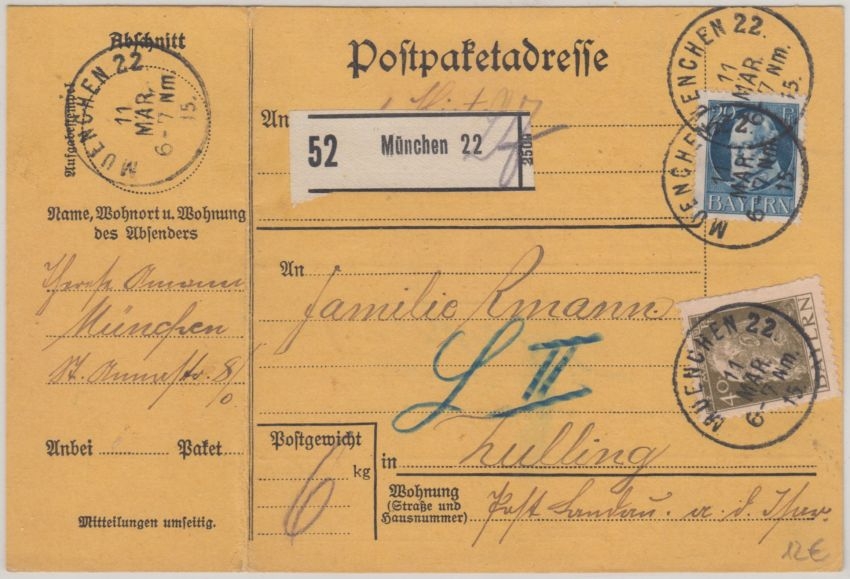 Abschnitt
Aufgabestempel
MUENCHEN 22
11
MAR.
6-7 Nm.
15.
Name, Wohnort u. Wohnung
des Absenders
Amann
München
St. Annastr. 8/0
Anbei Paket
Mitteilungen umseitig.
Postpaketadresse
MUENCHEN 22.
11
MAR.
6-7 Nm.
15.
An
52 München 22
2500
BAYERN
MUENCHEN 22.
MAR.
6-7 Nm.
15.
An
Familie Amann
L II
BAYERN
40
MUENCHEN 22.
11
MAR.
6-7 Nm.
15.
Postgewicht
6 kg
in Zulling
Wohnung
(Straße und
Hausnummer)
Post Landau a. d. Isar
12€